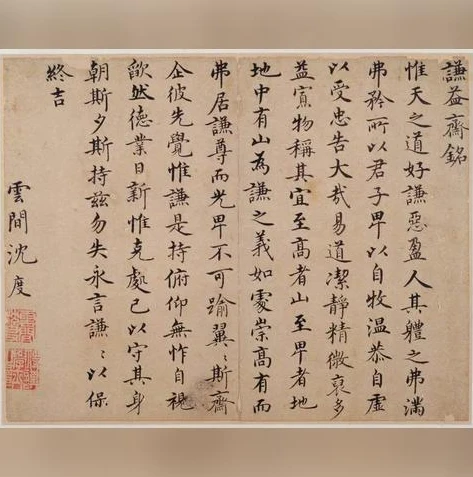 謙益齋銘
惟天之道好謙惡盈人其體之弗滿
弗矜所以君子卑以自牧温恭自虛
以受忠告大哉易道潔靜精微裒多
益寡物稱其宜至高者山至卑者地
地中有山為謙之義如處崇高有而
弗居謙尊而光卑不可踰翼〻斯齋
企彼先覺惟謙是持俯仰無怍自視
欿然德業日新惟克處己以守其身
朝斯夕斯持兹勿失永言謙〻以保
終吉
雲間沈度